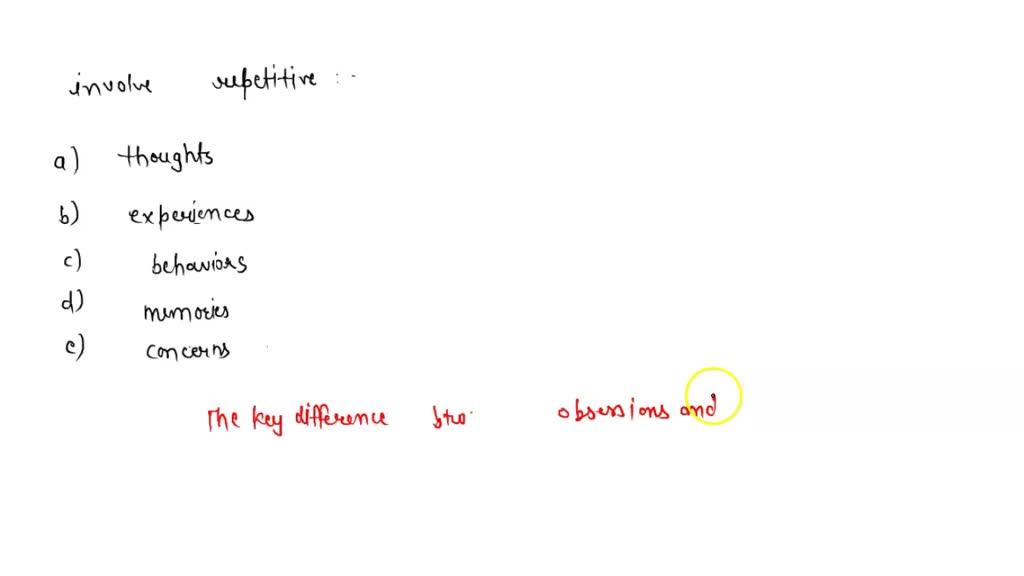 involve repetitive :-
a) thoughts
b) experiences
c) behaviors
d) memories
e) concerns
The key difference btw obsessions and